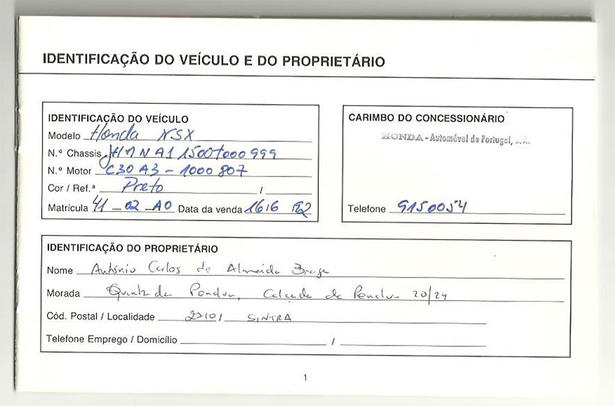 IDENTIFICAÇÃO DO VEÍCULO E DO PROPRIETÁRIO
IDENTIFICAÇÃO DO VEÍCULO
Modelo Honda NSX
N.º Chassis JHMNA11500T000999
N.º Motor C30A3-1000807
Cor / Ref.ª Preto /
Matrícula 41-02 AO Data da venda 16/6
CARIMBO DO CONCESSIONÁRIO
HONDA - Automóvel de Portugal,
Telefone 9150054
IDENTIFICAÇÃO DO PROPRIETÁRIO
Nome António Carlos de Almeida Braga
Morada Quinta da Pendoa, Calçada da Pendoa 20/24
Cód. Postal / Localidade 2710/ SINTRA
Telefone Emprego / Domicílio /
1